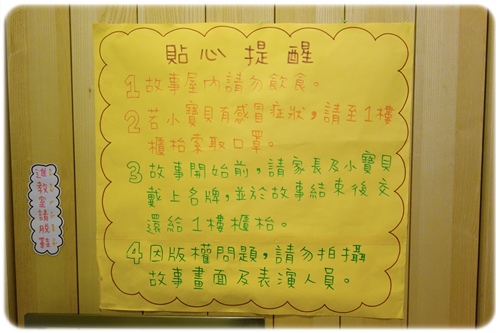 貼心提醒
1 故事屋內請勿飲食。
2 若小寶貝有感冒症狀,請至1樓
櫃枱索取口罩。
3 故事開始前,請家長及小寶貝
戴上名牌,並於故事結束後交
還給1樓櫃枱。
4 因版權問題,請勿拍攝
故事畫面及表演人員。
進教室請脫鞋